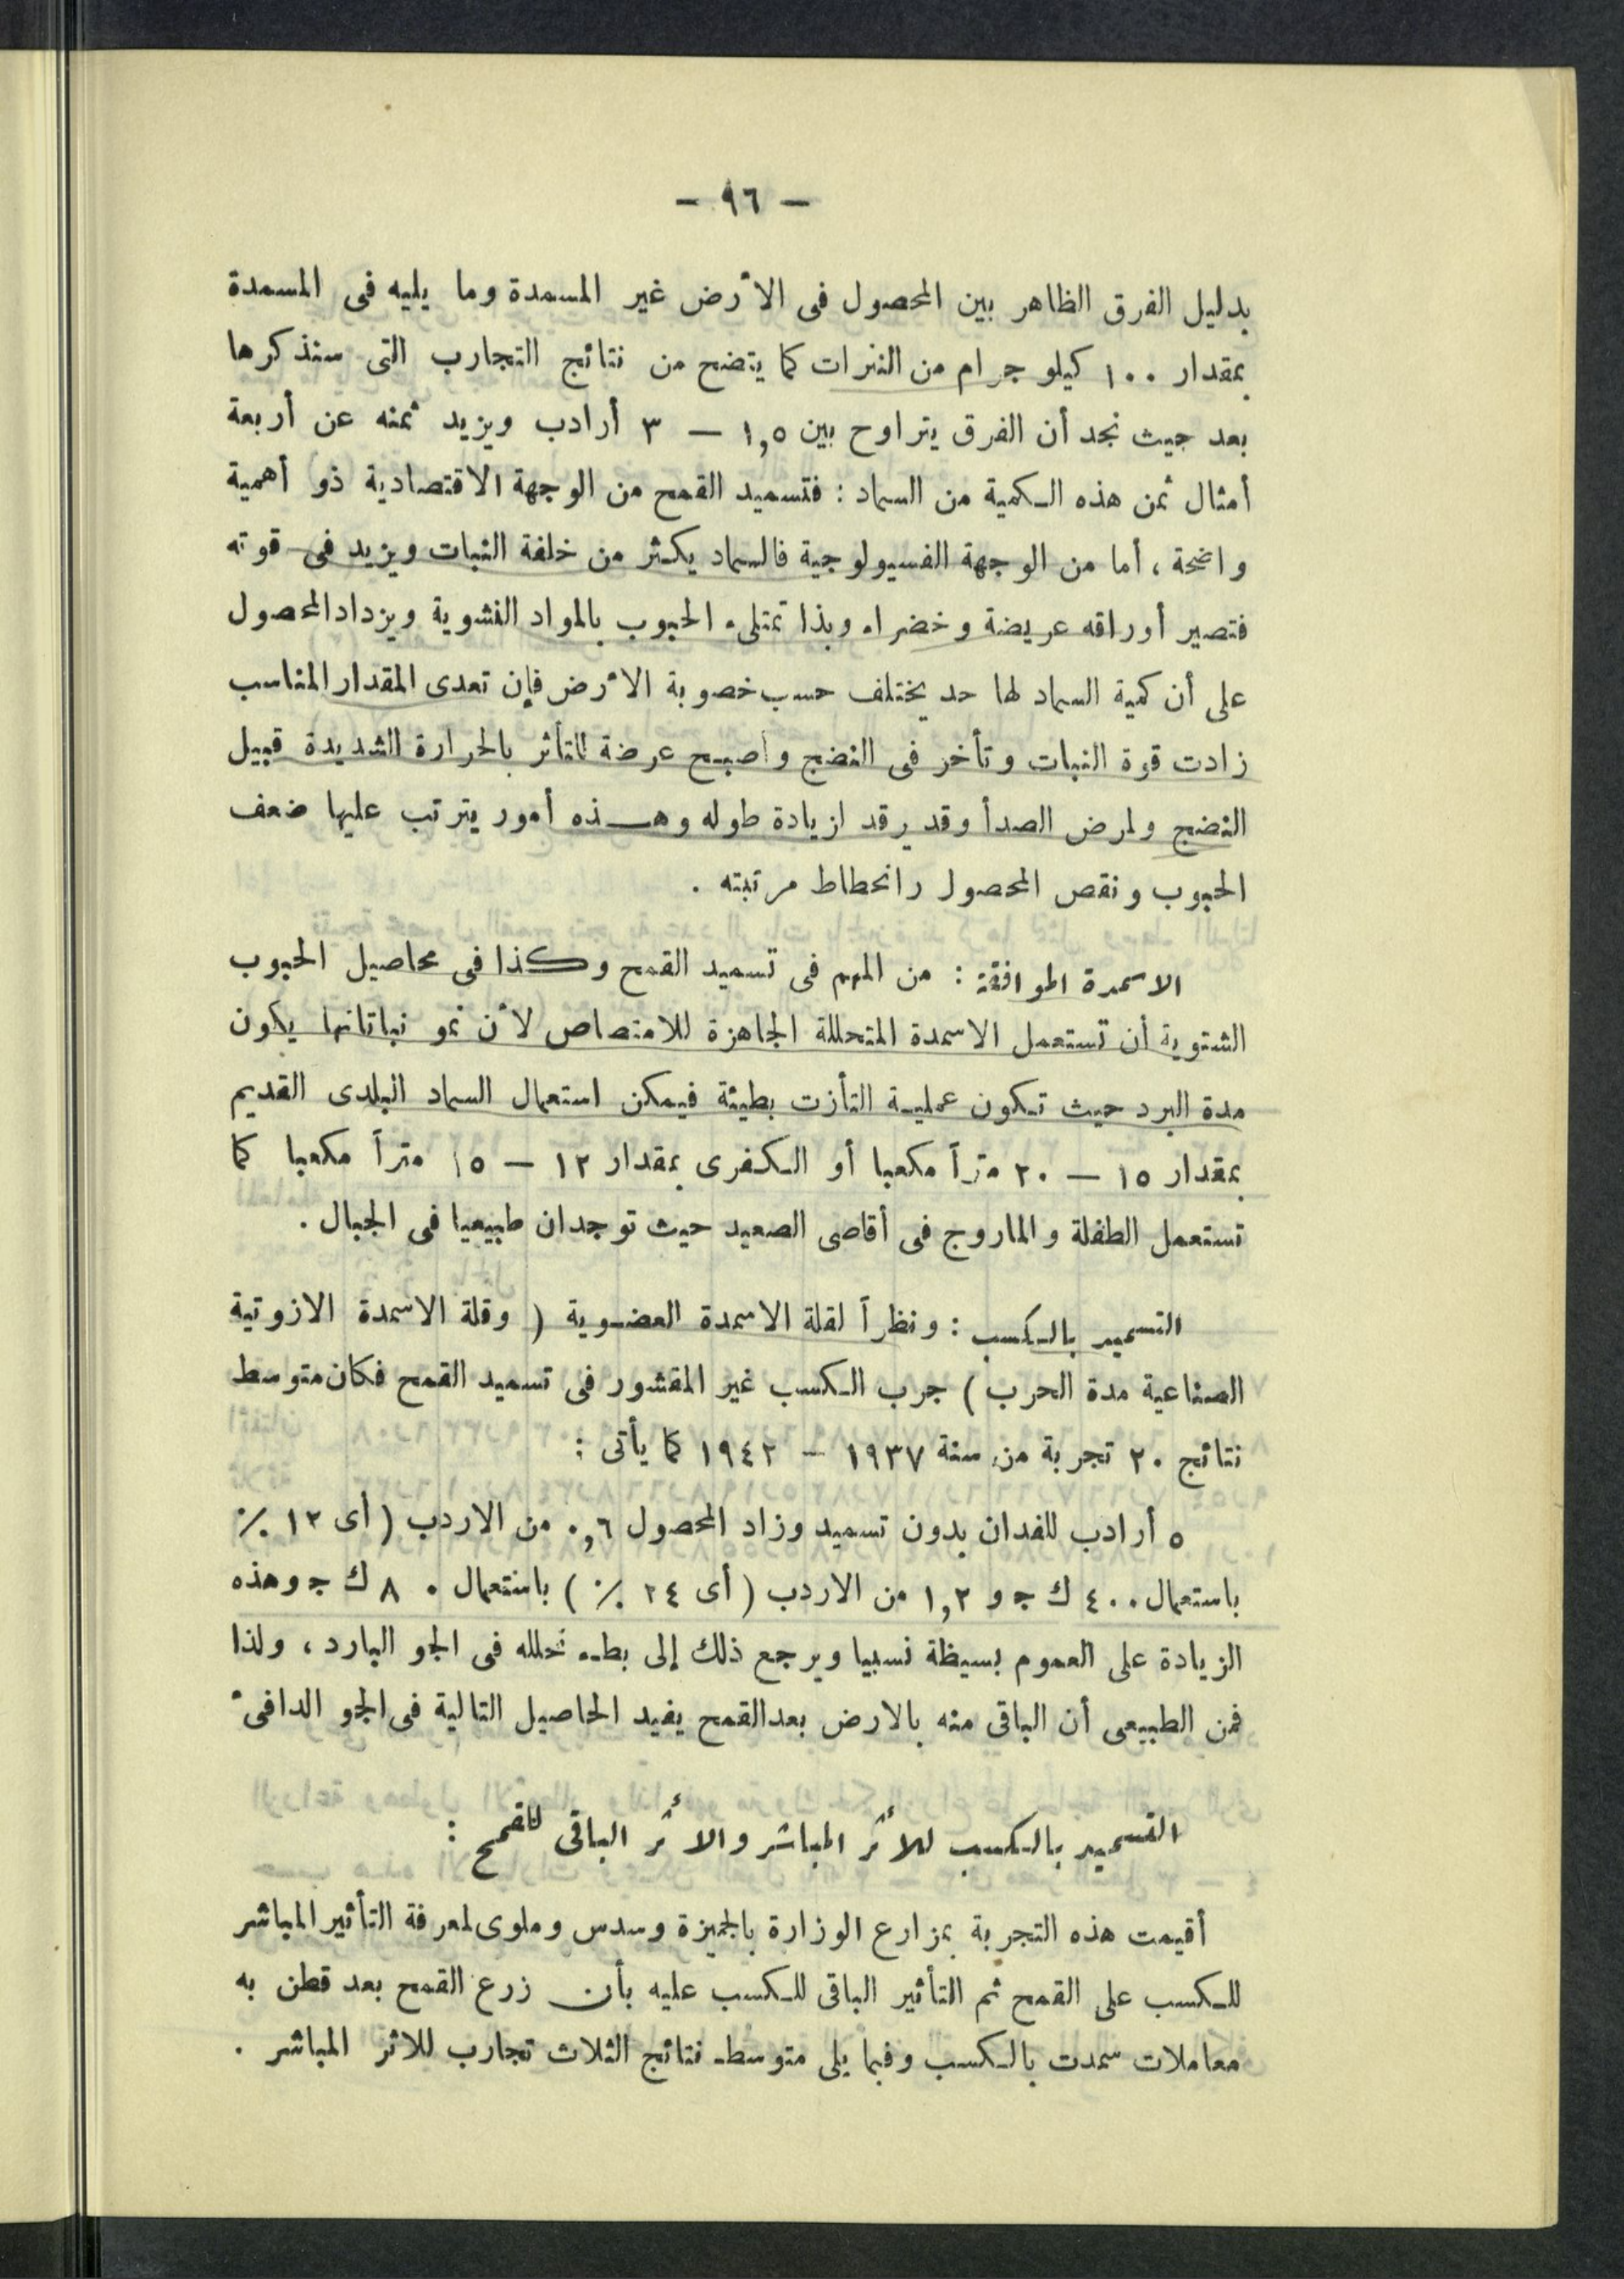 — ٩٦ —
بدليل الفرق الظاهر بين المحصول فى الأرض غير المسمدة وما يليه فى المسمدة
بمقدار ١٠٠ كيلو جرام من النترات كما يتضح من نتائج التجارب التى سنذكرها
بعد حيث نجد أن الفرق يتراوح بين ١,٥ — ٣ أرادب ويزيد ثمنه عن أربعة
أمثال ثمن هذه الكمية من السماد : فتسميد القمح من الوجهة الاقتصادية ذو أهمية
واضحة ، أما من الوجهة الفسيولوجية فالسماد يكثر من خلفة النبات ويزيد فى قوته
فتصير أوراقه عريضة وخضراء وبذا تمتلىء الحبوب بالمواد النشوية ويزداد المحصول
على أن كمية السماد لها حد يختلف حسب خصوبة الأرض فإن تعدى المقدار المناسب
زادت قوة النبات وتأخر فى النضج وأصبح عرضة للتأثر بالحرارة الشديدة قبيل
النضج ولمرض الصدأ وقد يرقد لزيادة طوله وهذه أمور يترتب عليها ضعف
الحبوب ونقص المحصول وانحطاط مرتبته .
الاسمدة الموافقة : من المهم فى تسميد القمح وكذا فى محاصيل الحبوب
الشتوية أن تستعمل الاسمدة المتحللة الجاهزة للامتصاص لأن نمو نباتاتها يكون
مدة البرد حيث تكون عملية التأزت بطيئة فيمكن استعمال السماد البلدى القديم
بمقدار ١٥ — ٢٠ متراً مكعبا أو الكفرى بمقدار ١٢ — ١٥ متراً مكعبا كما
تستعمل الطفلة والماروج فى أقاصى الصعيد حيث توجدان طبيعيا فى الجبال .
التسميد بالكسب : ونظراً لقلة الاسمدة العضوية ( وقلة الاسمدة الازوتية
الصناعية مدة الحرب ) جرب الكسب غير المقشور فى تسميد القمح فكان متوسط
نتائج ٢٠ تجربة من سنة ١٩٣٧ — ١٩٤٢ كما يأتى :
٥ أرادب للفدان بدون تسميد وزاد المحصول ٠,٦ من الاردب ( أى ١٢ ٪
باستعمال ٤٠٠ ك ج و ١,٢ من الاردب ( أى ٢٤ ٪ ) باستعمال ٨٠ ك ج وهذه
الزيادة على العموم بسيطة نسبيا ويرجع ذلك إلى بطء تحلله فى الجو البارد ، ولذا
فمن الطبيعى أن الباقى منه بالارض بعد القمح يفيد الحاصيل التالية فى الجو الدافىء
التسميد بالكسب للأثر المباشر والأثر الباقى للقمح :
أقيمت هذه التجربة بمزارع الوزارة بالجيزة وسدس وملوى لمعرفة التأثير المباشر
للكسب على القمح ثم التأثير الباقى للكسب عليه بأن زرع القمح بعد قطن به
معاملات سمدت بالكسب وفيما يلى متوسط نتائج الثلاث تجارب للاثر المباشر .